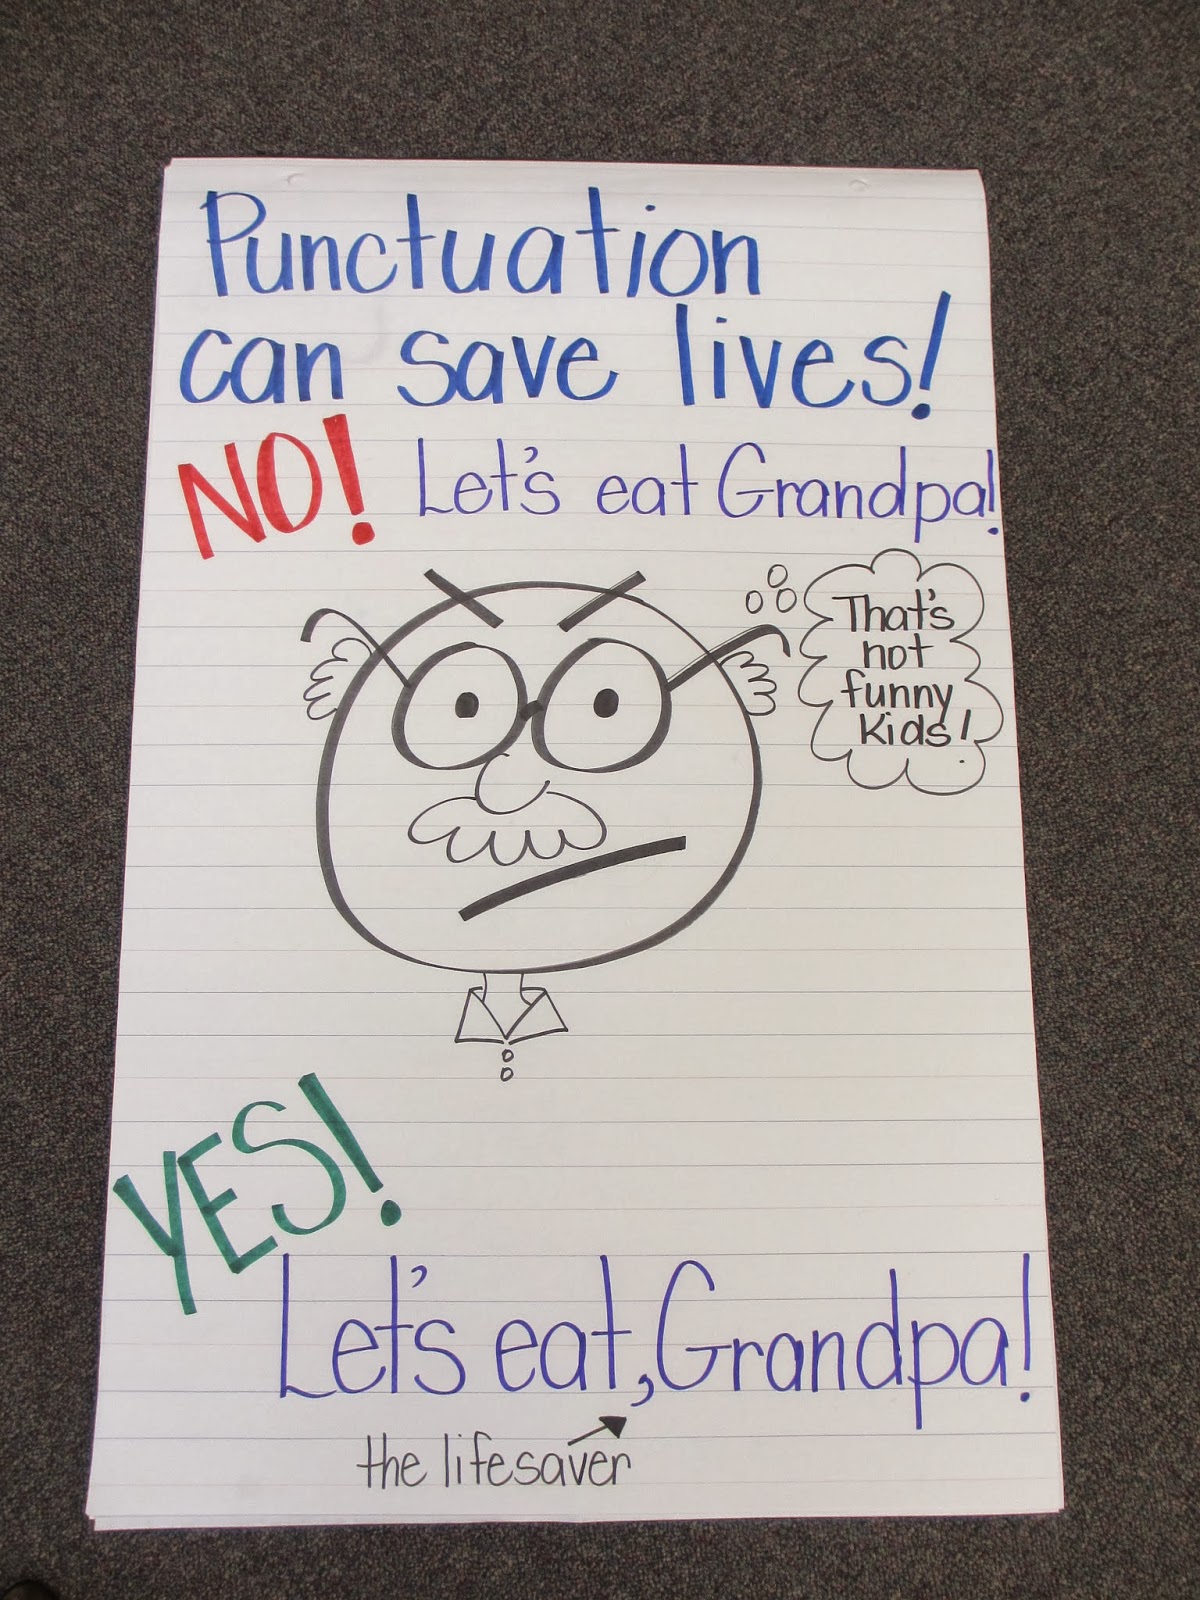 Punctuation
can save lives!
NO! Let's eat Grandpa!
That's
not
funny
Kids!
YES!
Let's eat, Grandpa!
the lifesaver